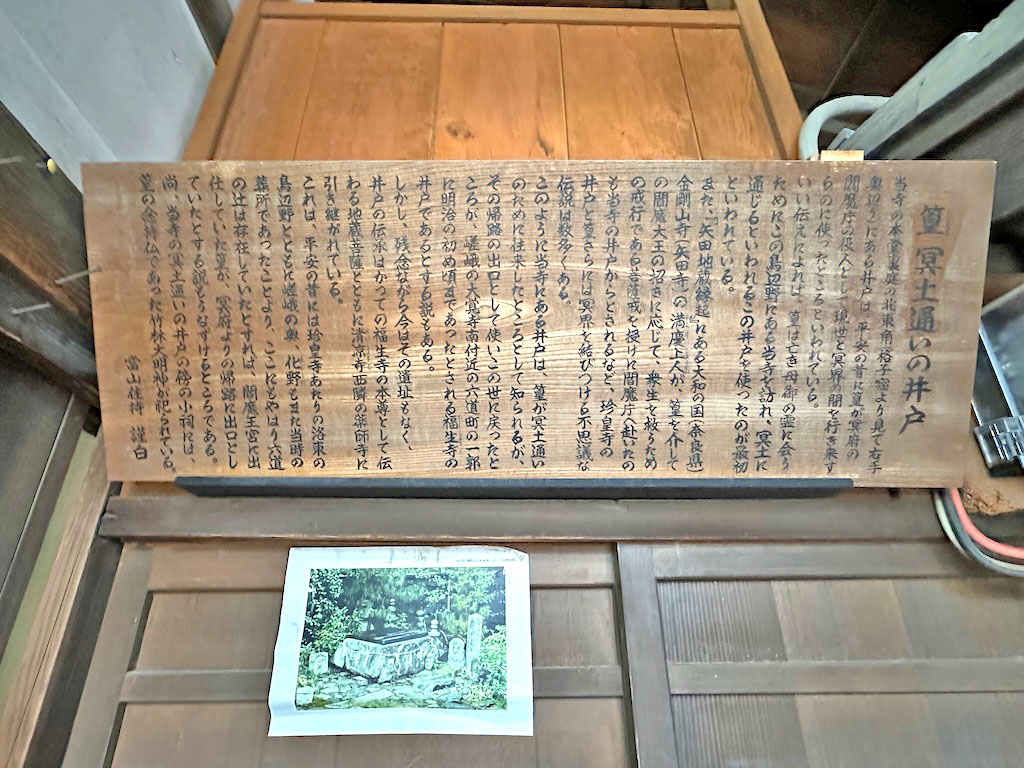 篁 冥土通いの井戸
当寺の本堂裏庭の北東角(格子窓より見て右手
奥辺り)にある井戸は、平安の昔に篁が冥府の
閻魔庁の役人として現世と冥界の間を行き来す
らのに使ったところといわれている。
いい伝えによれば、篁は亡き母御の霊に会う
ためにこの鳥辺野にある当寺を訪れ、冥土に
通じるといわれるこの井戸を使ったのが最初
といわれている。
また、『矢田地蔵縁起』にある大和の国(奈良県)
金剛山寺(矢田寺)の満慶上人が、篁を介して
の閻魔大王の招きに応じて、衆生を救うため
の戒行である菩薩戒を授けに閻魔庁へ赴いたの
も当寺の井戸からとされるなど、珍皇寺の
井戸と篁さらには冥界を結びつける不思議な
伝説は数多くある。
このように当寺にある井戸は、篁が冥土通い
のために往来したところとして知られるが、
その帰路の出口として使いこの世に戻ったと
ころが、嵯峨の大覚寺南付近の六道町の一郭
に明治の初め頃まであったとされる福生寺の
井戸であるとする説もある。
しかし、残念ながら今はその遺址もなく、
井戸の伝承はかつての福生寺の本尊として伝
わる地蔵菩薩とともに清凉寺西隣の薬師寺に
引き継がれている。
これは、平安の昔には珍皇寺あたりの洛東の
鳥辺野とともに嵯峨の奥、化野もまた当時の
葬所であったことより、ここにもやはり六道
の辻は存在していたとすれば、閻魔王宮に出
仕していた篁が、冥府よりの帰路に出口とし
ていたとする説もうなずけるところである。
尚、当寺の冥土通いの井戸の傍の小祠には、
篁の念持仏であった竹林大明神が祀られている。
當山住持 謹白